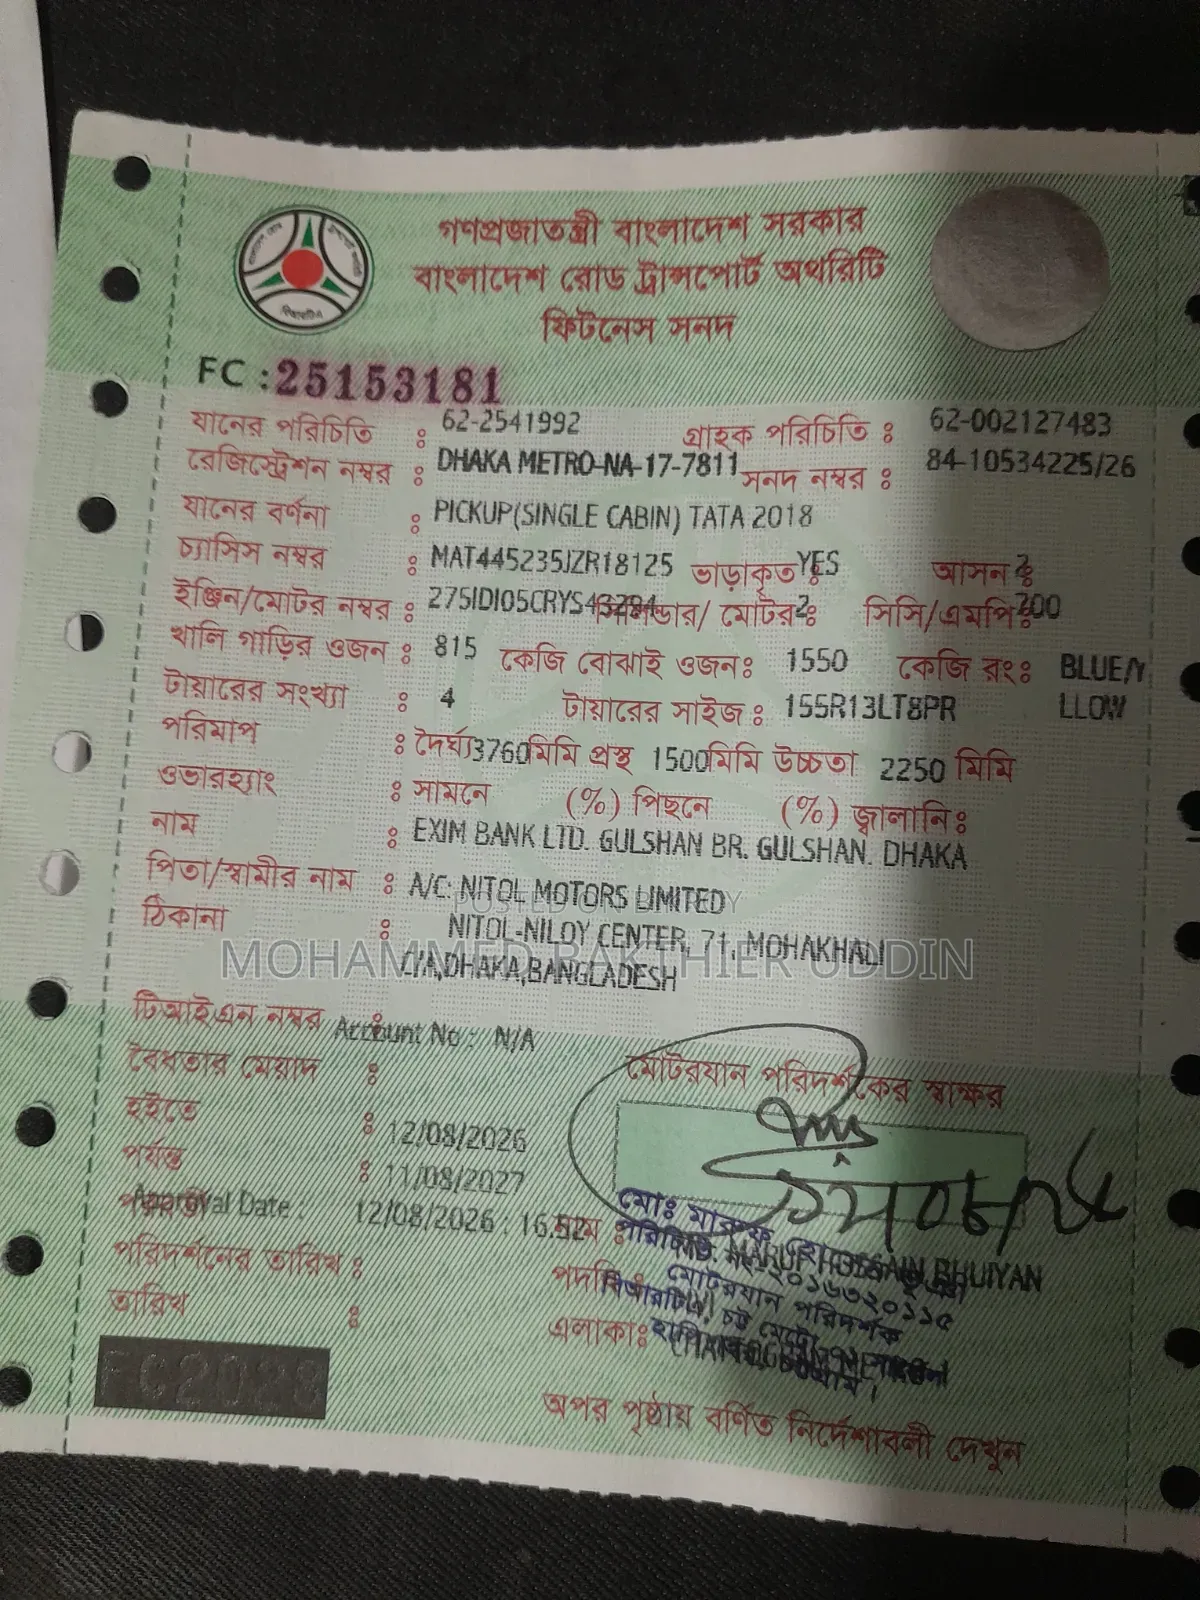 গণপ্রজাতন্ত্রী বাংলাদেশ সরকার
বাংলাদেশ রোড ট্রান্সপোর্ট অথরিটি
ফিটনেস সনদ
FC : 25153181
যানের পরিচিতি : 62-2541992 গ্রাহক পরিচিতি : 62-002127483
রেজিস্ট্রেশন নম্বর : DHAKA METRO-NA-17-7811 সনদ নম্বর : 84-10534225/26
যানের বর্ণনা : PICKUP(SINGLE CABIN) TATA 2018
চ্যাসিস নম্বর : MAT445235JZR18125 ভাড়াকৃত : YES আসন : 2
ইঞ্জিন/মোটর নম্বর : 275IDI05CRYS43284 সিলিন্ডার/ মোটর : 2 সিসি/এমপি : 700
খালি গাড়ির ওজন : 815 কেজি বোঝাই ওজন : 1550 কেজি রং : BLUE/Y
LLOW
টায়ারের সংখ্যা : 4 টায়ারের সাইজ : 155R13LT8PR
পরিমাপ : দৈর্ঘ্য 3760 মিমি প্রস্থ 1500 মিমি উচ্চতা 2250 মিমি
ওভারহ্যাং : সামনে (%) পিছনে (%) জ্বালানি :
নাম : EXIM BANK LTD. GULSHAN BR. GULSHAN. DHAKA
পিতা/স্বামীর নাম : A/C: NITOL MOTORS LIMITEDY
POSTED ON BY
ঠিকানা : NITOL-NILOY CENTER, 71, MOHAKHALI
MOHAMMED BAKTHIER UDDIN
C/A,DHAKA,BANGLADESH
টিআইএন নম্বর : Account No : N/A
বৈধতার মেয়াদ :
মোটরযান পরিদর্শকের স্বাক্ষর
হইতে : 12/08/2026
পর্যন্ত : 11/08/2027
Approval Date : 12/08/2026 : 16.52
নাম : MD. MARUF HOSSAIN BHUIYAN
পরিদর্শনের তারিখ :
পদবি :
মোটরযান পরিদর্শক
তারিখ :
এলাকা :
FC2028
অপর পৃষ্ঠায় বর্ণিত নির্দেশাবলী দেখুন